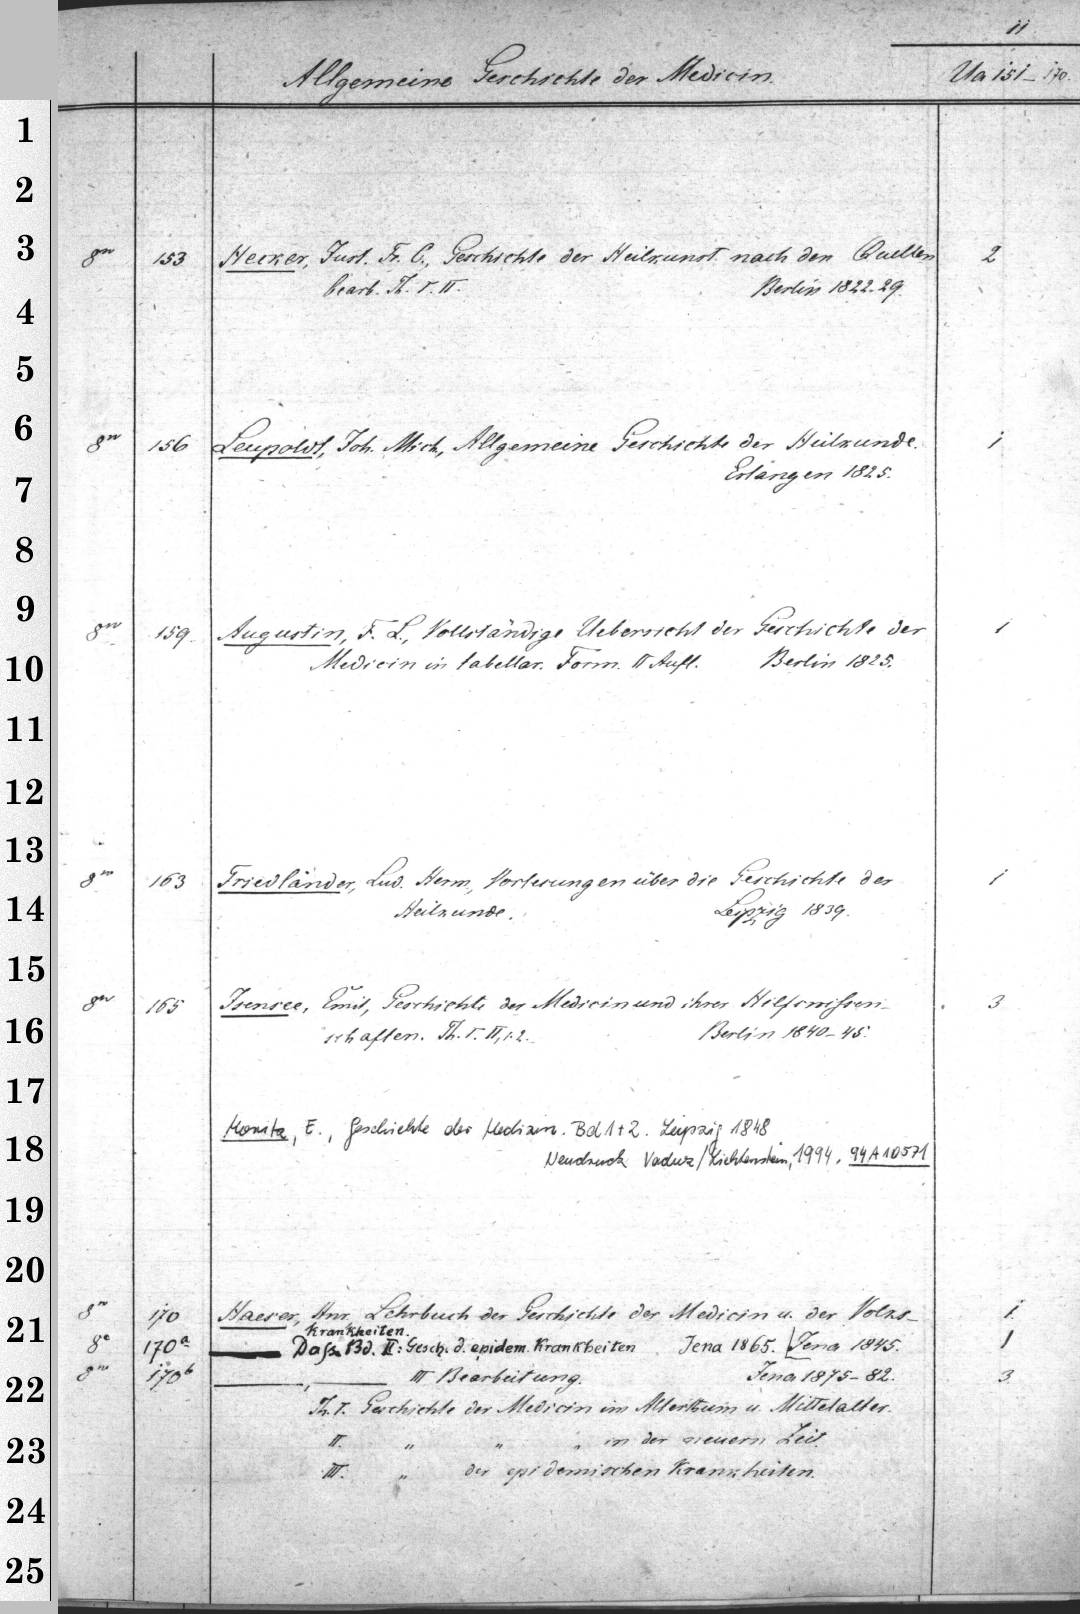 11
Allgemeine Geschichte der Medicin. Ua 151-170.
1
2
3 8vo 153 Hecker, Just. Fr. C., Geschichte der Heilkunst nach den Quellen 2
bearb. Th. I. II. Berlin 1822-29.
4
5
6 8vo 156 Leupoldt, Joh. Mich., Allgemeine Geschichte der Heilkunde. 1
Erlangen 1825.
7
8
9 8vo 159. Augustin, F. L., Vollständige Uebersicht der Geschichte der 1
10 Medicin in tabellar. Form. II Aufl. Berlin 1825.
11
12
13 8vo 163 Friedländer, Lud. Herm., Vorlesungen über die Geschichte der 1
14 Heilkunde. Leipzig 1839.
15
8vo 165 Isensee, Emil, Geschichte der Medicin und ihrer Hilfswissen- 3
16 schaften. Th. I. II, 1.2. Berlin 1840-45.
17
Morwitz, E., Geschichte der Medizin. Bd 1+2. Leipzig 1848
18 Neudruck Vaduz/Lichtenstein, 1994. 94A10571
19
20
8vo 170 Haeser, Hnr. Lehrbuch der Geschichte der Medicin u. der Volks- 1
21 Krankheiten.
8o 170a Dass. Bd. II: Gesch. d. epidem. Krankheiten Jena 1865. Jena 1845. 1
22 8vo 170b , III Bearbeitung. Jena 1875-82. 3
Th. I. Geschichte der Medicin im Alterthum u. Mittelalter.
23 II. " " " in der neuern Zeit.
III. " der epidemischen Krankheiten.
24
25